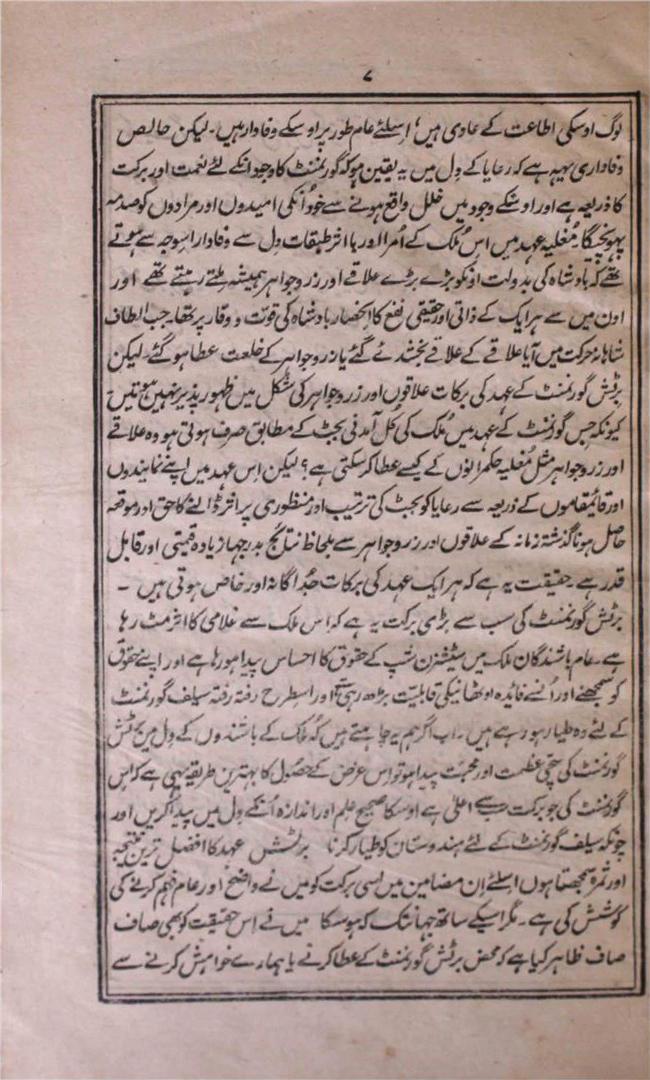 ۷
لوگ اوسکی اطاعت کے عادی ہیں، اسلئے عام طور پر اوسکے وفادار ہیں۔ لیکن خالص
وفاداری یہہ ہے کہ رعایا کے دِل میں یہ یقین ہو کہ گورنمنٹ کا وجود انکے لئے نعمت اور برکت
کا ذریعہ ہے اور اوسکے وجود میں خلل واقع ہونے سے خود اُنکی امیدوں اور مرادوں کو صدمہ
پہونچیگا۔ مُغلیہ عہد میں اس مُلک کے اُمرا اور با اثر طبقات دِل سے وفادار اسوجہ سے ہوتے
تھے کہ بادشاہ کی بدولت اونکو بڑے بڑے علاقے اور زر و جواہر ہمیشہ ملتے رہتے تھے اور
اون میں سے ہر ایک کے ذاتی اور حقیقی نفع کا انحصار بادشاہ کی قوت و وقار پر تھا۔ جب الطاف
شاہانہ حرکت میں آیا علاقے کے علاقے بخشدئے گئے یا زر و جواہر کے خلعت عطا ہو گئے۔ لیکن
برٹش گورنمنٹ کے عہد کی برکات علاقوں اور زر و جواہر کی شکل میں ظہور پذیر نہیں ہوتیں
کیونکہ جس گورنمنٹ کے عہد میں مُلک کی کُل آمدنی بجٹ کے مطابق صرف ہوتی ہو وہ علاقے
اور زر و جواہر مثل مُغلیہ حکمرانوں کے کیسے عطا کر سکتی ہے؟ لیکن اس عہد میں اپنے نمایندوں
اور قائمقاموں کے ذریعہ سے رعایا کو بجٹ کی ترتیب اور منظوری پر اثر ڈالنے کا حق اور موقعہ
حاصل ہونا گذشتہ زمانہ کے علاقوں اور زر و جواہر سے بلحاظ نتائج بدرجہا زیادہ قیمتی اور قابل
قدر ہے۔ حقیقت یہ ہے کہ ہر ایک عہد کی برکات جُداگانہ اور خاص ہوتی ہیں ۔
برٹش گورنمنٹ کی سب سے بڑی برکت یہ ہے کہ اس ملک سے غلامی کا اثر مٹ رہا
ہے۔ عام باشندگان ملک میں سیٹیزن شپ کے حقوق کا احساس پیدا ہو رہا ہے اور اپنے حقوق
کو سمجھنے اور اُنسے فائدہ اوٹھانیکی قابلیت بڑھ رہی ہے اور اسطرح رفتہ رفتہ سیلف گورنمنٹ
کے لئے وہ طیار ہو رہے ہیں۔ اب اگر ہم یہ چاہتے ہیں کہ مُلک کے باشندوں کے دِل میں برٹش
گورنمنٹ کی سچی عظمت اور محبت پیدا ہو تو اس غرض کے حصُول کا بہترین طریقہ یہی ہے کہ اس
گورنمنٹ کی جو برکت سب سے اعلیٰ ہے اوسکا صحیح علم اور اندازہ اُنکے دِل میں پیدا کریں اور
چونکہ سیلف گورنمنٹ کے لئے ہندوستان کو طیار کرنا برٹش عہد کا افضل ترین نتیجہ
اور ثمرہ سمجھتا ہوں اسلئے اِن مضامین میں اسی برکت کو میں نے واضح اور عام فہم کرنے کی
کوشش کی ہے۔ مگر اسیکے ساتھ جہانتک کہ ہوسکا میں نے اِس حقیقت کو بھی صاف
صاف ظاہر کیا ہے کہ محض برٹش گورنمنٹ کے عطا کرنے یا ہمارے خواہش کرنے سے